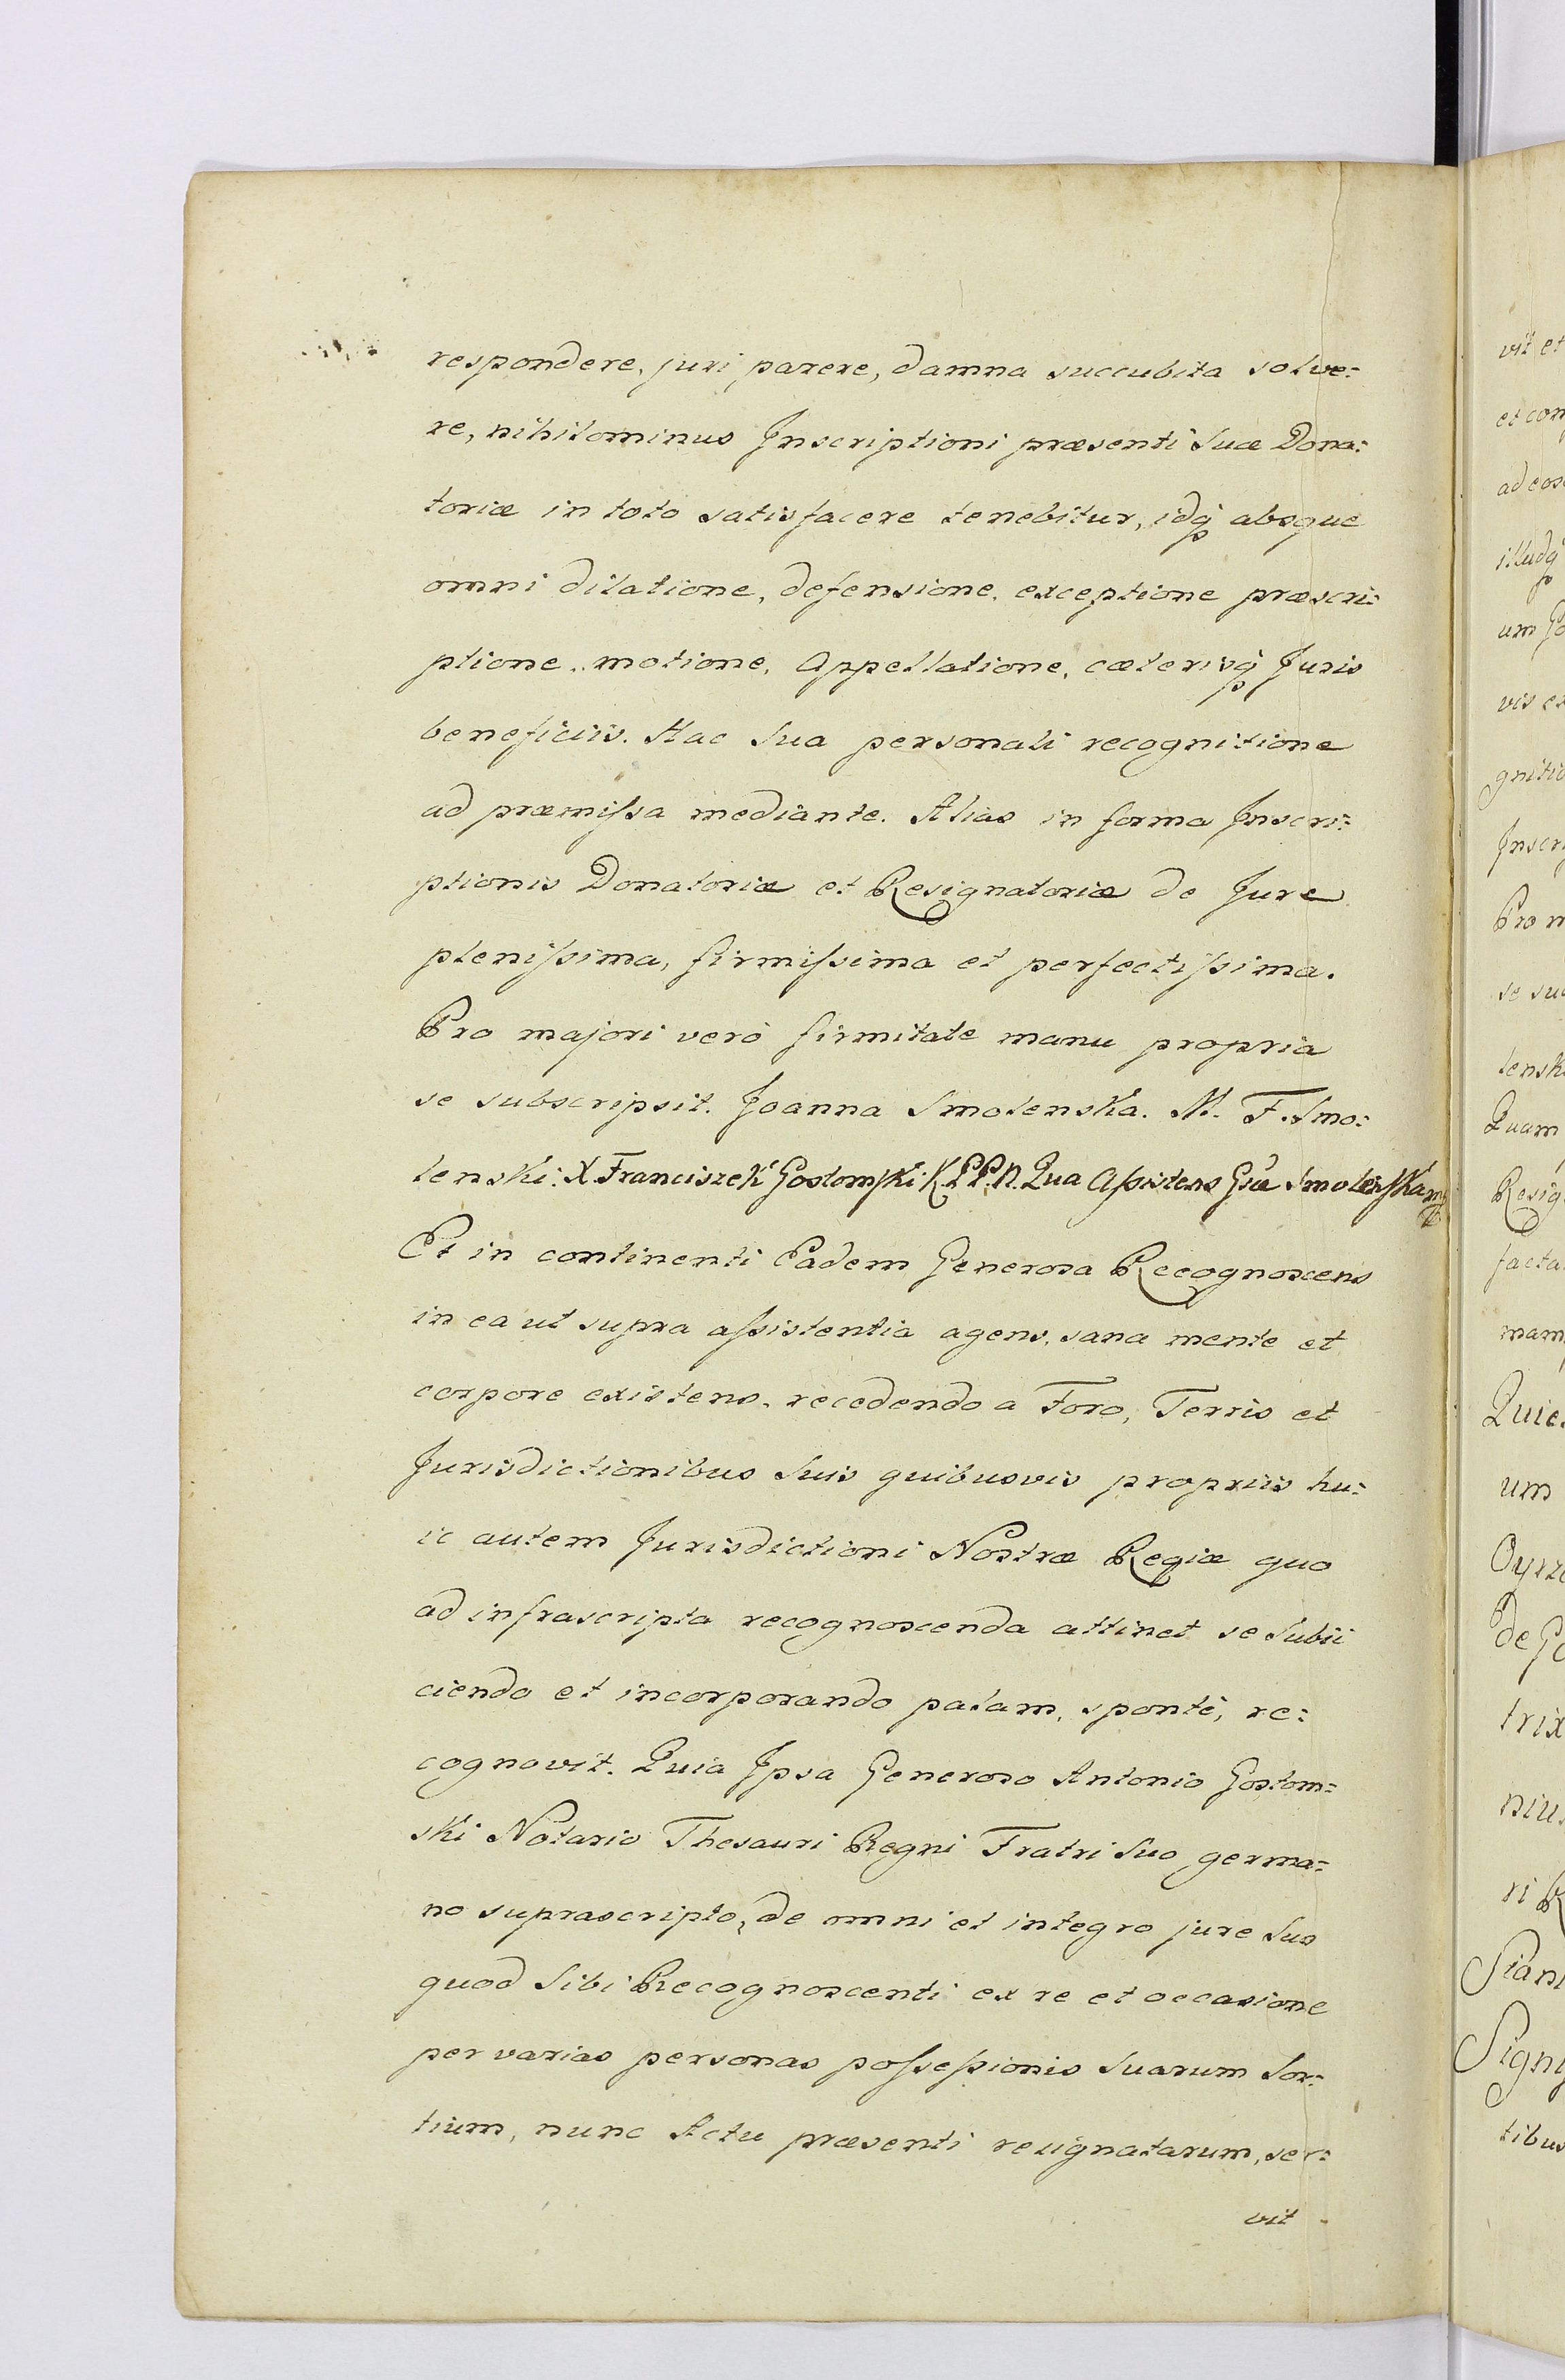 respondere, juri parere, damna succubita solve:
re, nihilominus Inscriptioni præsenti Suæ Dona:
toriæ in toto satisfacere tenebitur, idq̃ absque
omni dilatione, defensione, exceptione præscri:
ptione, motione, Appellatione, cæterisq̃ Juris
beneficiis. Hac Sua personali recognitione
ad præmiſsa mediante. Alias in forma Inscri:
ptionis Donatoriæ et Resignatoriæ de Jure
pleniſsima, firmiſsima et perfectiſsima.
Pro majori verò firmitate manu propria
se subscripsit. Joanna Smolenska. M. F. Smo:
lenski. X. Franciszek Gostomſki K.P.P.N. Qua Aſsistens Gſæ Smolenſka mp
Et in continenti Eadem Generosa Recognoscens
in ea ut supra aſsistentia agens, sana mente et
corpore existens, recedendo a Foro, Terris et
Jurisdictionibus Suis quibusvis propriis hu:
ic autem Jurisdictioni Nostræ Regiæ quo
ad infrascripta recognoscenda attinet se Subii
ciendo et incorporando palam, spontè, re:
cognovit. Quia Ipsa Generoso Antonio Gostom=
ski Notario Thesauri Regni Fratri Suo germa=
no suprascripto, de omni et integro jure Suo
quod Sibi Recognoscenti ex re et occasione
per varias personas poſseſsionis Suarum Sor:
tium, nunc Actu præsenti resignatarum, ser:
vit
vit et
ad eos
illudq̃
um Go
vis ex
gnitio
Inscri
Pro m
se su
lensk
Quam
Resig
facta
mam
Quie
um
de Ge
trix
niu
ri R
Sian
Signi
tibus